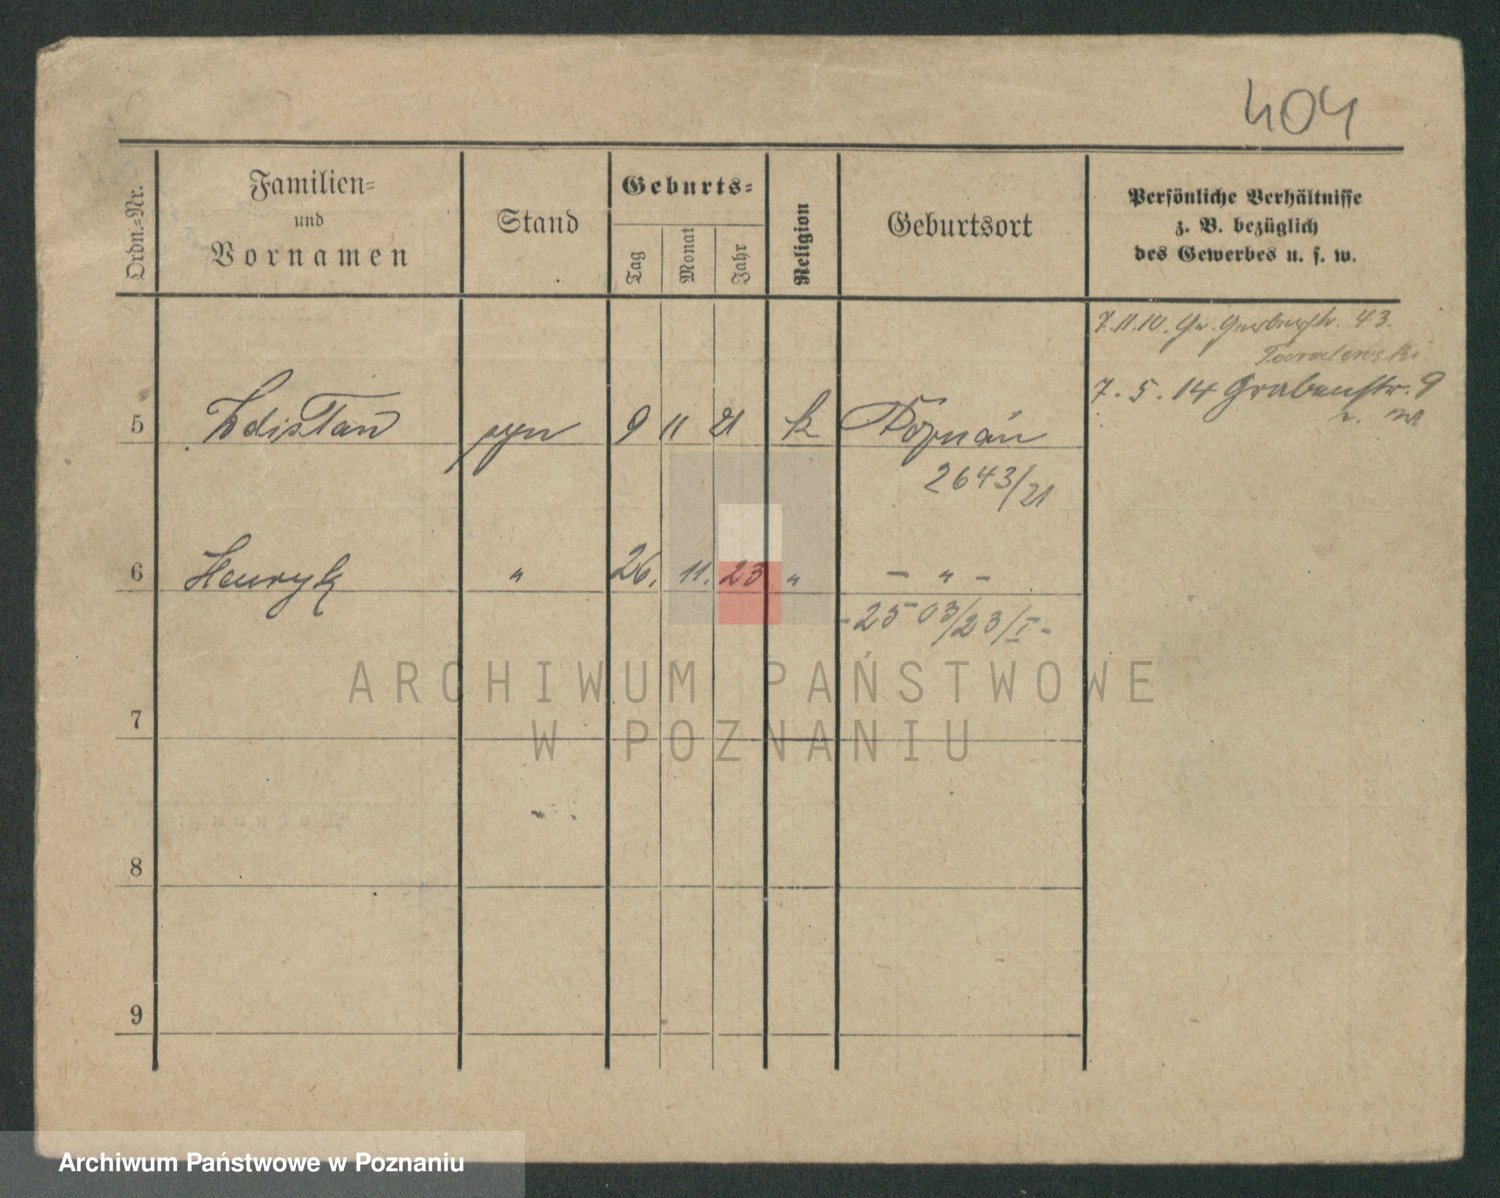 404
Ordn.-Nr.
Familien-
und
Vornamen
Stand
Geburts-
Tag
Monat
Jahr
Religion
Geburtsort
Persönliche Verhältnisse
z. B. bezüglich
des Gewerbes u. s. w.
7.11.10. Gr. Gerberstr. 43.
7. 5. 14 Grabenstr. 9
5 Zdisław syn 9 11 21 k Poznań
2643/21
6 Henryk " 26. 11. 23 " - " -
-2503/23/I-
7
8
9
ARCHIWUM PAŃSTWOWE
W POZNANIU
Archiwum Państwowe w Poznaniu